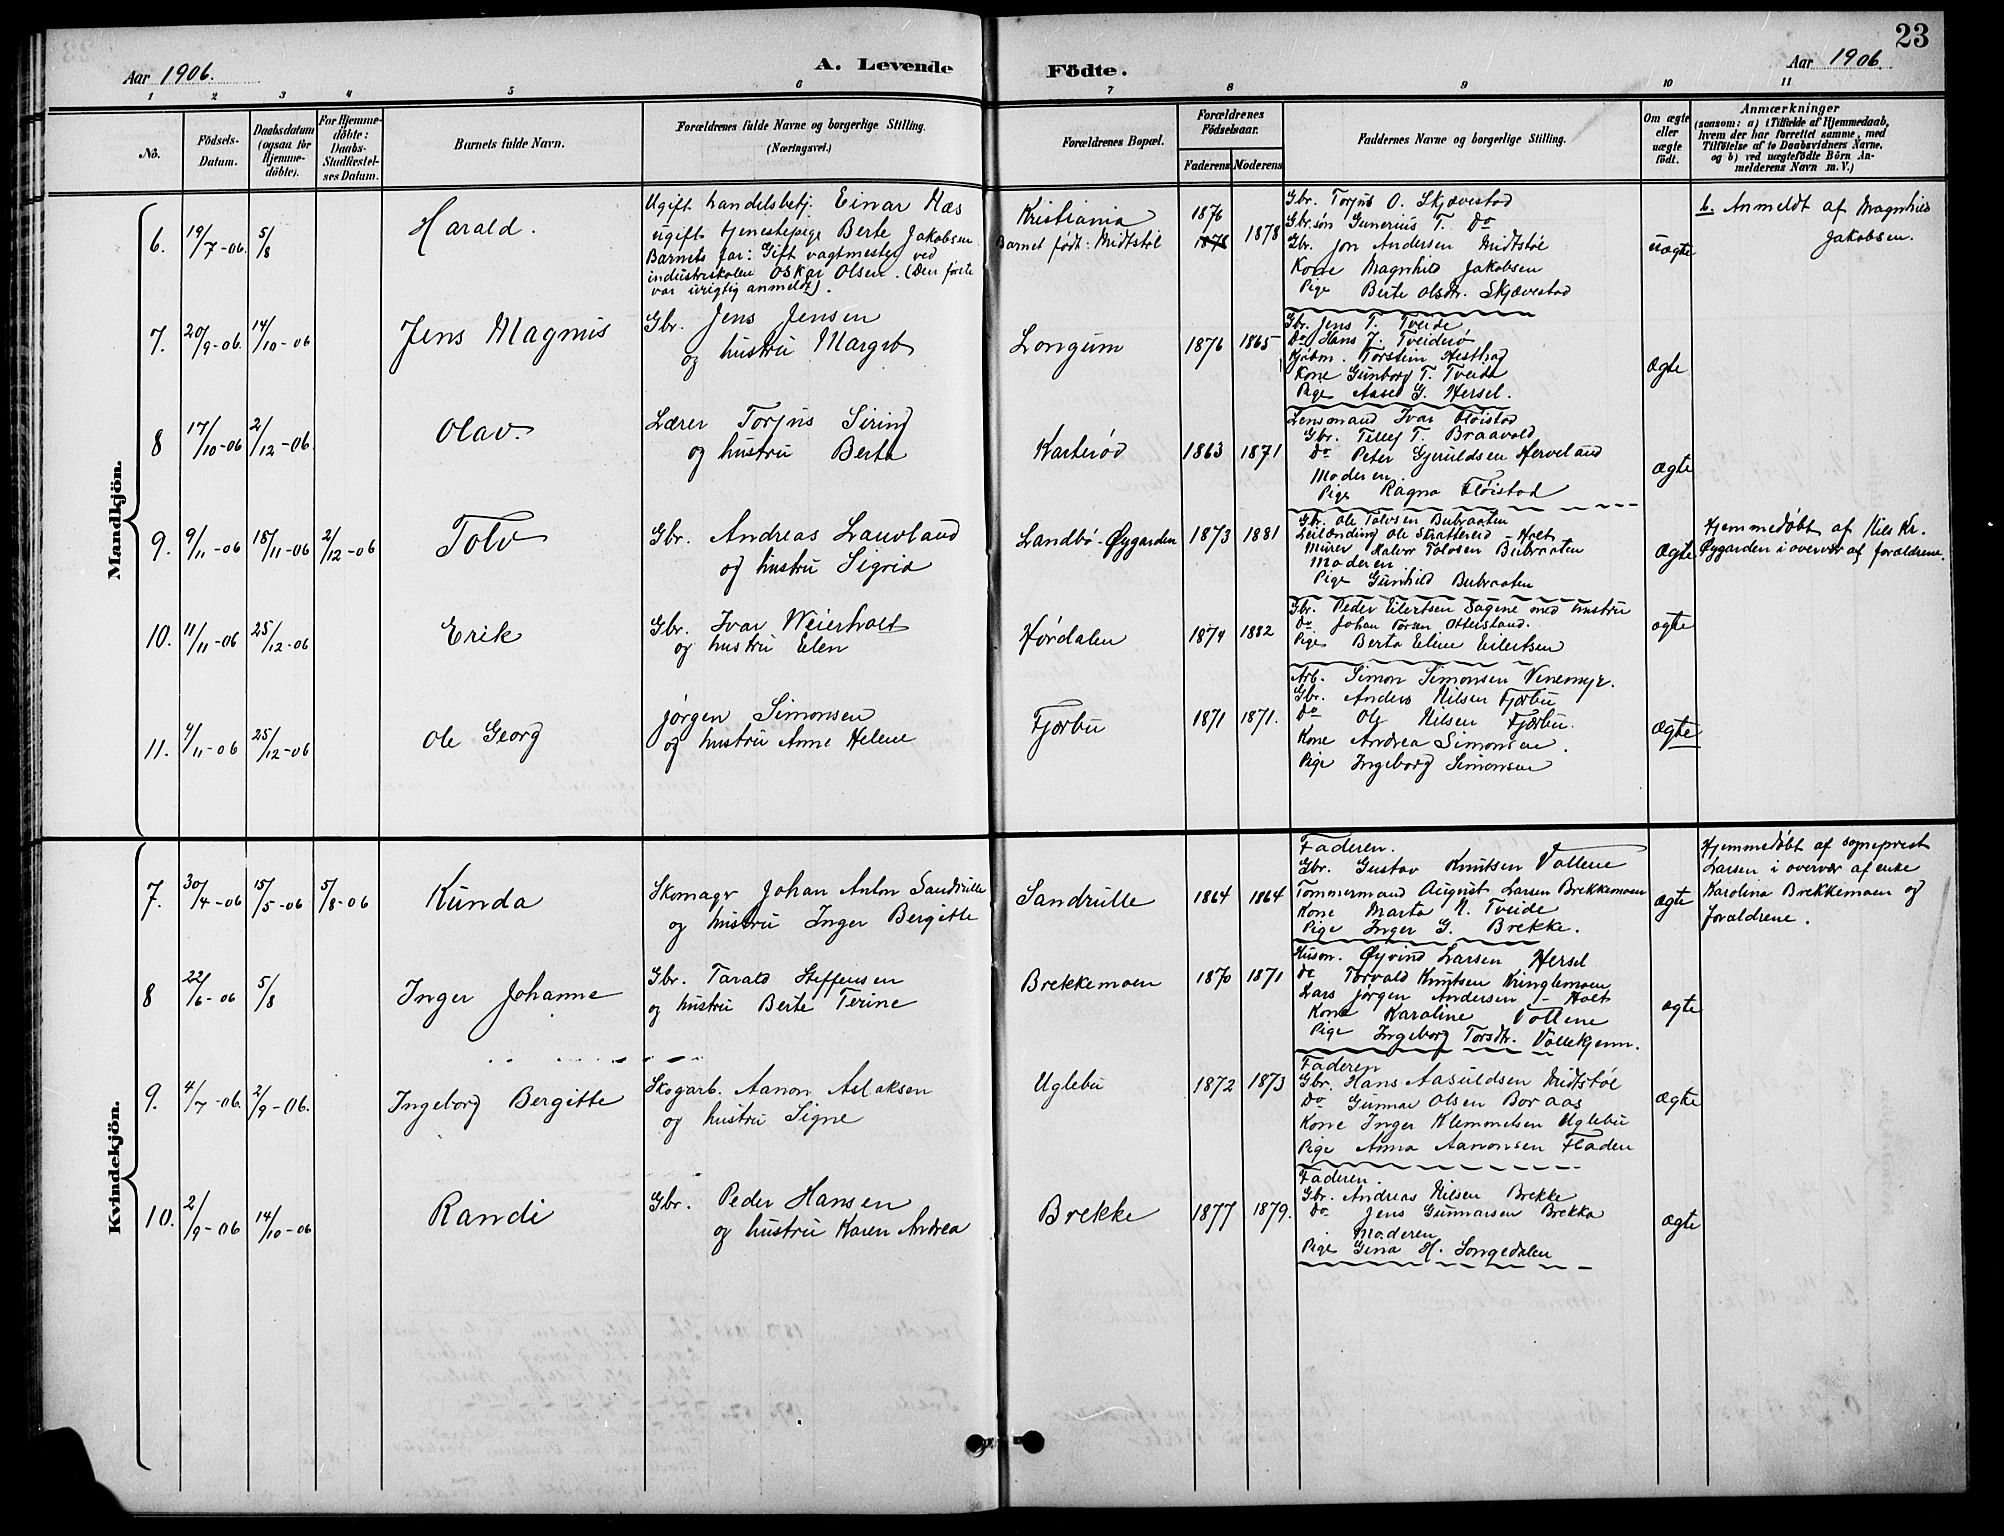 23
Aar 1906.
A. Levende
Födte.
Aar 1906
1 2 3 4 5 6 7 8 9 10 11
No.
Födsels-
Datum.
Daabsdatum
(ogsaa for
Hjemme-
døbte).
For Hjemme-
døbte:
Daabs-
Stadfæstel-
ses Datum.
Barnets fulde Navn.
Forældrenes fulde Navne og borgerlige Stilling.
(Næringsvei.)
Forældrenes Bopæl.
Forældrenes
Födselsaar.
Faderens
Moderens
Faddernes Navne og borgerlige Stilling.
Om ægte
eller
uægte
født.
Anmærkninger
(saasom: a) i Tilfælde af Hjemmedaab,
hvem der har forrettet samme, med
Tilføielse af to Daabsvidners Navne,
og b) ved uægtefødte Børn An-
melderens Navn m. V.)
Mandkjön.
6.
19/7-06.
5/8
Harald.
Ugift handelsbetj. Einar Næs
ugift tjenestepige Berte Jakobsen
Barnets far: Gift vagtmester ved
industriskolen Oskar Olsen. (Den første
var urigtig anmeldt).
Kristiania
Barnet født: Midtstøl
1876
1878
1878
Gbr. Torjus O. Skjævestad
Gbr.søn Gunerius T. Do
Gbr. Jon Andersen Midtstøl
Kone Magnhild Jakobsen
Pige Berte Olsdtr. Skjævestad
uægte
b. Anmeldt af Magnhild
Jakobsen.
7.
20/9-06.
14/10-06
Jens Magnus
Gbr. Jens Jensen
og hustru Margit
Longum
1876
1865
Gbr. Jens T. Tveide
Do Hans J. Tveiderø
Kjøbm. Torstein Hesthag
Kone Gunborg T. Tveide
Pige Aasel G. Hersel.
Ægte
8
17/10-06
2/12-06
Olav.
Lærer Torjus Siring
og hustru Berta
Karterød
1863
1871
Lensmand Ivar Fløistad
Gbr. Tellef T. Braavold
Do Peter Gjeruldsen Herveland
Moderen
Pige Ragna Fløistad
Ægte
9.
9/11-06
18/11-06
2/12-06
Tolv
Gbr. Andreas Lauvland
og hustru Sigrid
Landbø-Øygarden
1873
1881
Gbr. Ole Tolvsen Bubraaten
Leilænding Ole Skattered - Holt
Murer Halvor Tolvsen Bubraaten
Moderen
Pige Gunhild Bubraaten
Ægte
Hjemmedøbt af Nils Kr.
Øygarden i overvær af forældrene.
10.
11/11-06
25/12-06
Erik
Gbr. Ivar Weierholt
og hustru Elen
Hørdalen
1874
1882
Gbr. Peder Eilertsen Sagene med hustru
Do Johan Torsen Otterstand.
Pige Berta Eline Eilertsen
ægte
11.
4/11-06
25/12-06
Ole Georg
Jørgen Simonsen
og hustru Anne Helene
Fjærbu
1871
1871.
Arb. Simon Simonsen Venemyr.
Gbr. Anders Nilsen Fjærbu
Do Ole Nilsen Fjærbu.
Kone Andrea Simonsen.
Pige Ingeborg Simonsen
Ægte
Kvindekjön.
7.
30/4-06
15/5-06
5/8-06
Kunda
Skomagr Johan Anton Sandrulle
og hustru Inger Bergitte
Sandrulle
1864
1864
Faderen.
Gbr. Gustav Knutsen Vollene
Tømmermand August Larsen Brekkemoen
Kone Marta N. Tveide
Pige Inger G. Brekke.
Ægte
Hjemmedøbt af sogneprest
Larsen i overvær af enke
Karolina Brekkemoen og
forældrene.
8
22/6-06
5/8
Inger Johanne
Gbr. Tarald Steffensen
og hustru Berte Terine
Brekkemoen
1870
1871
Husm. Øyvind Larsen Hersel
Do Torvald Knutsen Kringlemoen
Lars Jørgen Andersen - Holt
Kone Karoline Vollene
Pige Ingeborg Torsdtr. Vollekjenn.
ægte
9.
4/7-06.
2/9-06.
Ingeborg Bergitte
Skogarb. Aanon Aslaksen
og hustru Signe
Uglebu
1872
1873
Faderen
Gbr. Hans Aasuldsen Midtstøl
Do Gunnar Olsen Boraas
Kone Inger Klemmetsen Uglebu
Pige Anna Aanonsen Fladen
Ægte
10.
2/9-06
14/10-06
Randi
Gbr. Peder Hansen
og hustru Karen Andrea
Brekke
1877
1879.
Faderen.
Gbr. Andreas Nilsen Brekke
Do Jens Gunnarsen Brekka
Moderen
Pige Gina H. Songedalen
Ægte